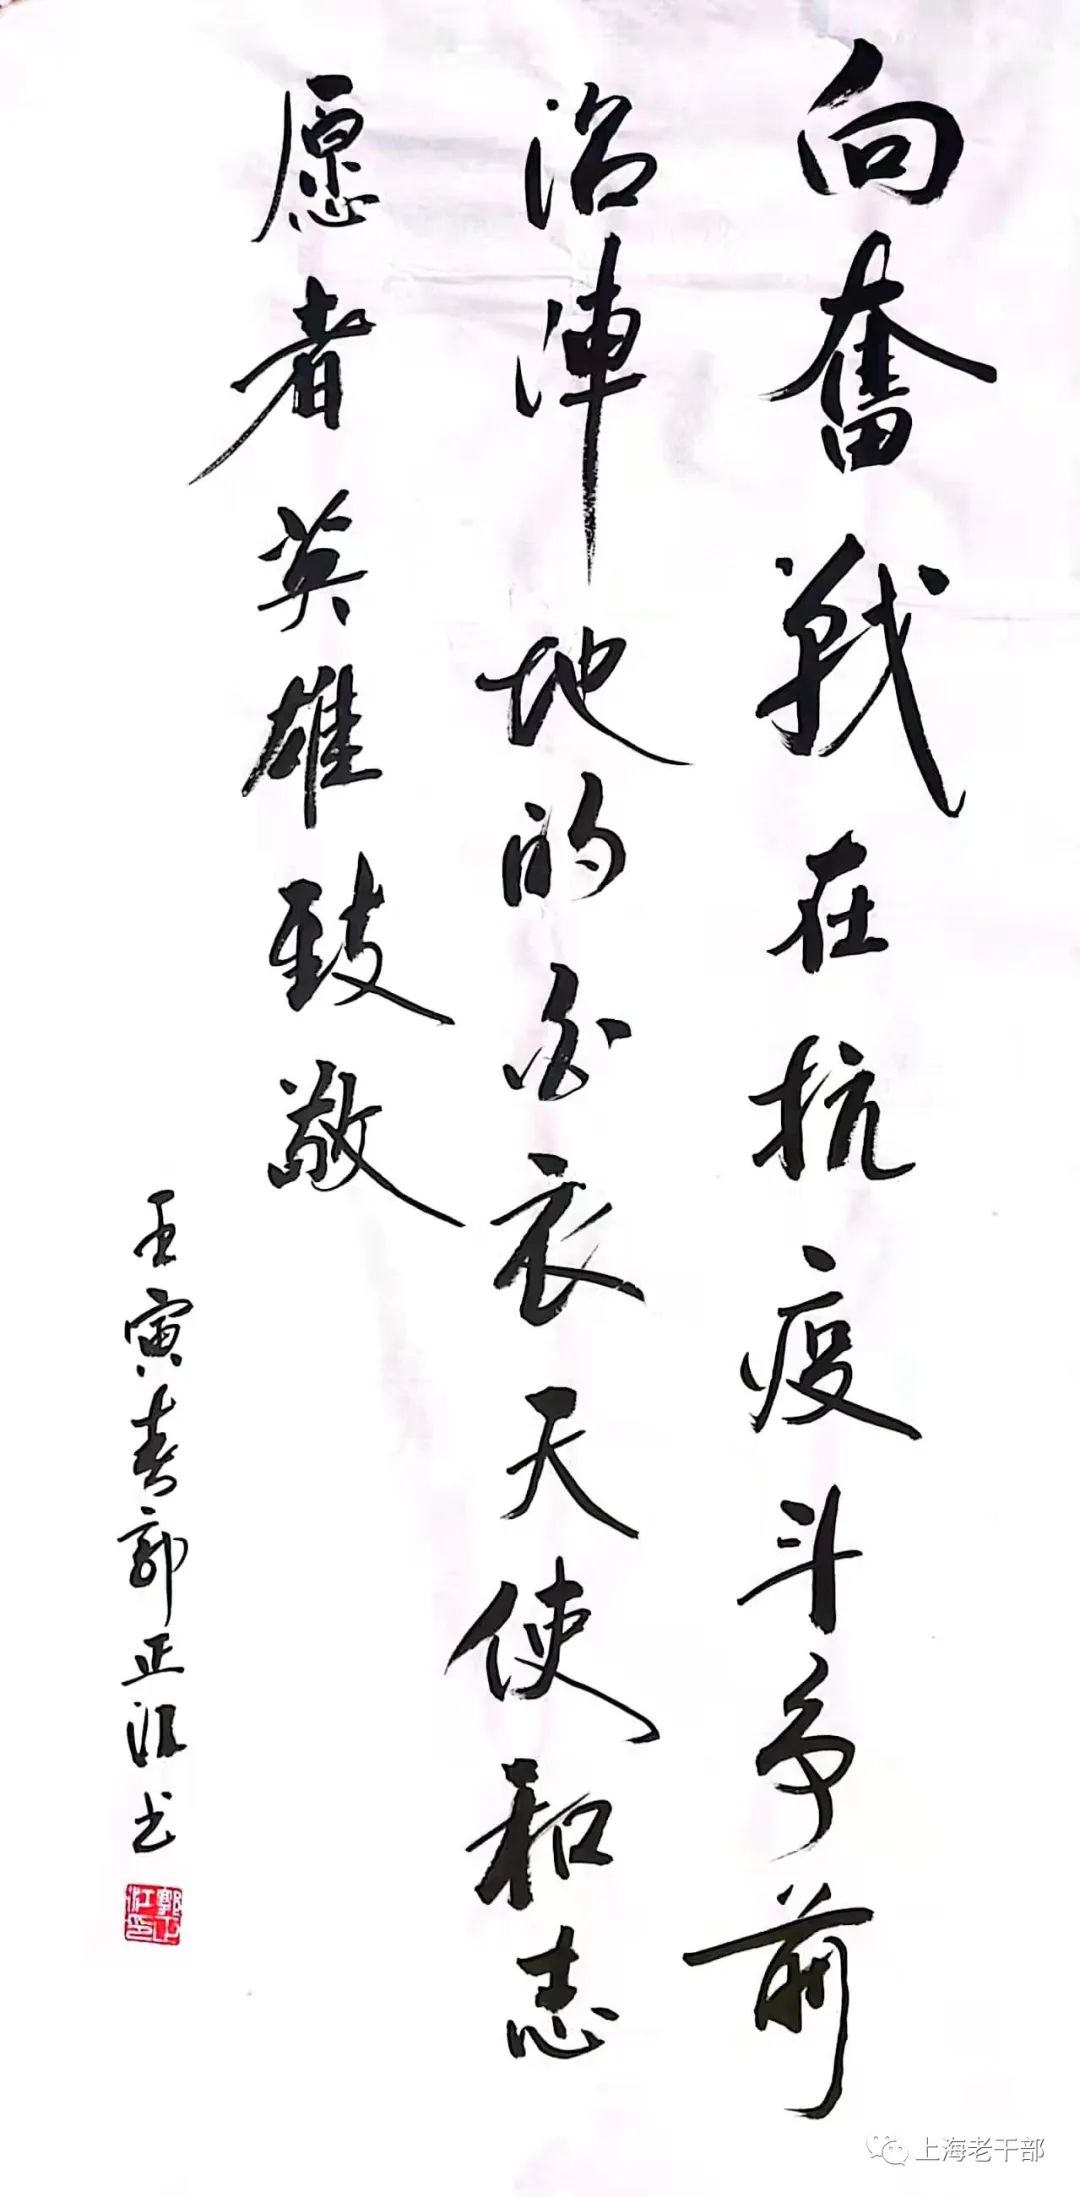 向奮戰在抗疫斗争前
沿陣地的白衣天使和志
愿者英雄致敬
壬寅春郭正江书
郭正江印
上海老干部